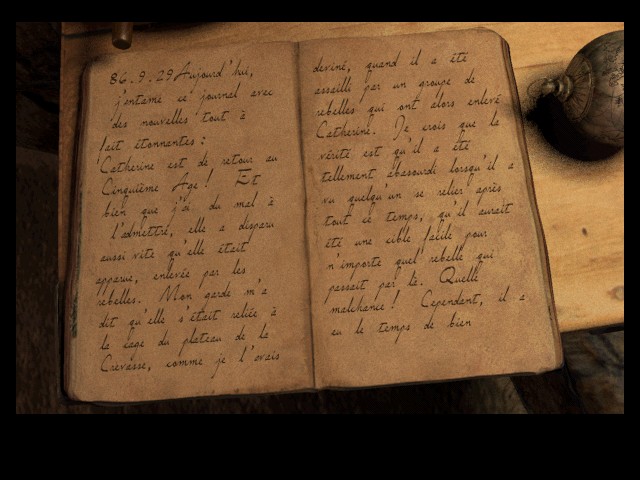 86.9.29 Aujourd'hui,
j'entame ce journal avec
des nouvelles tout à
fait étonnantes :
Catherine est de retour au
Cinquième Age ! Et
bien que j'ai du mal à
l'admettre, elle a disparu
aussi vite qu'elle était
apparue, enlevée par les
rebelles. Mon garde m'a
dit qu'elle s'était reliée à
la cage du plateau de la
Crevasse, comme je l'avais
deviné, quand il a été
assailli par un groupe de
rebelles qui ont alors enlevé
Catherine. Je crois que la
vérité est qu'il a été
tellement abasourdi lorsqu'il a
vu quelqu'un se relier après
tout ce temps, qu'il aurait
été une cible facile pour
n'importe quel rebelle qui
passait par là. Quelle
malchance ! Cependant, il a
eu le temps de bien